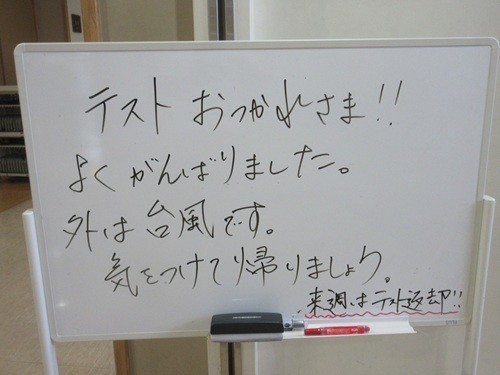 テスト おつかれさま!!
よくがんばりました。
外は台風です。
気をつけて帰りましょう。
来週はテスト返却!!